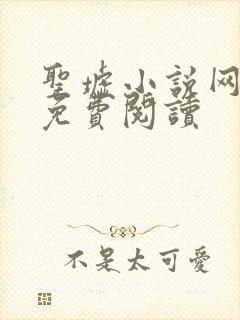 聖墟小說网
免費閱讀
不是太可愛